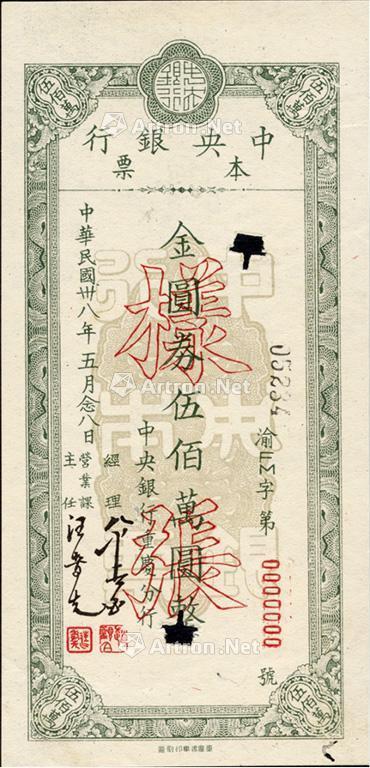 中央銀行
本票
伍佰萬
伍佰萬
金圓券伍佰萬圓整
樣張
05234
渝EM字第
0000000
號
中央銀行重慶分行
經理
營業課
主任
汪警先
中華民國卅八年五月念八日
伍佰萬
伍佰萬
Artron.Net